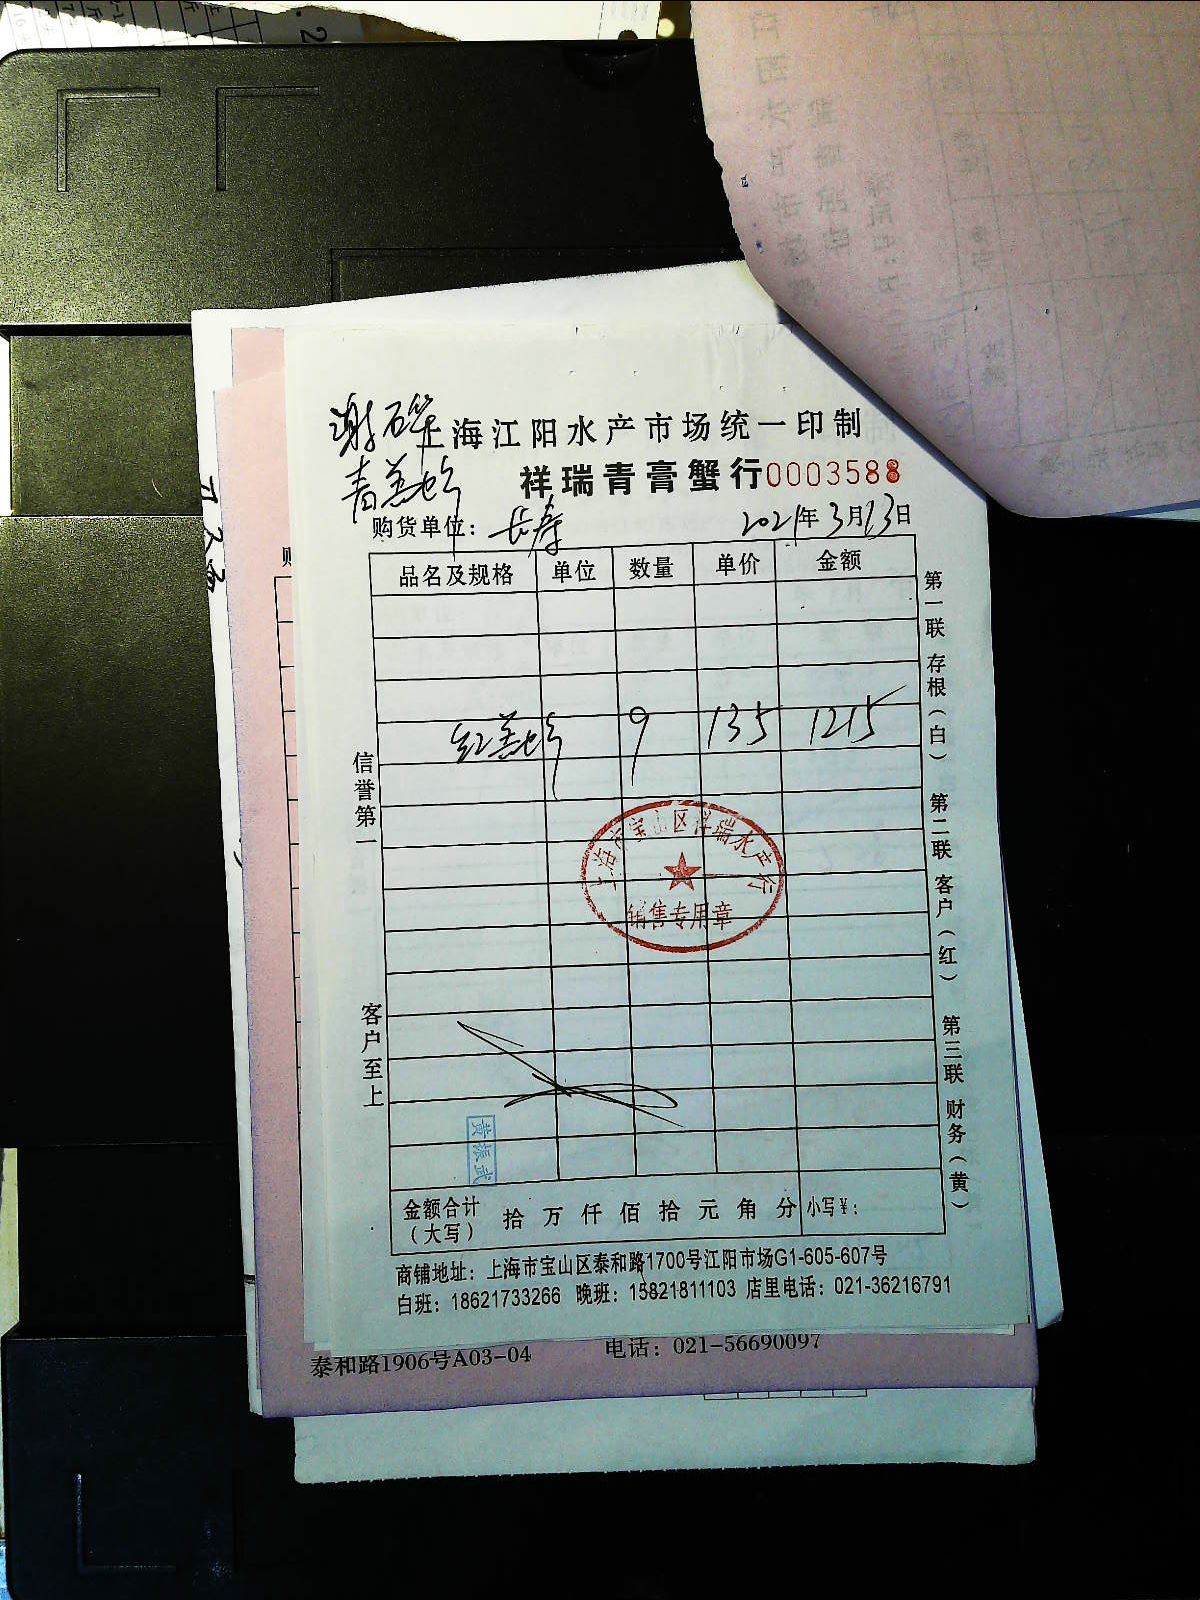 上海江阳水产市场统一印制
祥瑞青膏蟹行0003588
购货单位：长寿 2021年3月13日
品名及规格 单位 数量 单价 金额
红羔 9 135 1215
信誉第一
客户至上
第一联 存根（白） 第二联 客户（红） 第三联 财务（黄）
上海市宝山区祥瑞水产行
销售专用章
黄振武
金额合计（大写） 拾 万 仟 佰 拾 元 角 分 小写¥：
商铺地址：上海市宝山区泰和路1700号江阳市场G1-605-607号
白班：18621733266 晚班：15821811103 店里电话：021-36216791
泰和路1906号A03-04 电话：021-56690097